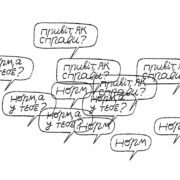 Привіт, як
справи?
Привіт, як
справи?
Норм, а
у тебе?
Привіт, як
справи?
Привіт, як
справи?
Норм, а
у тебе?
Норм
Норм, а
у тебе?
Норм, а
у тебе?
Норм
Норм
Норм